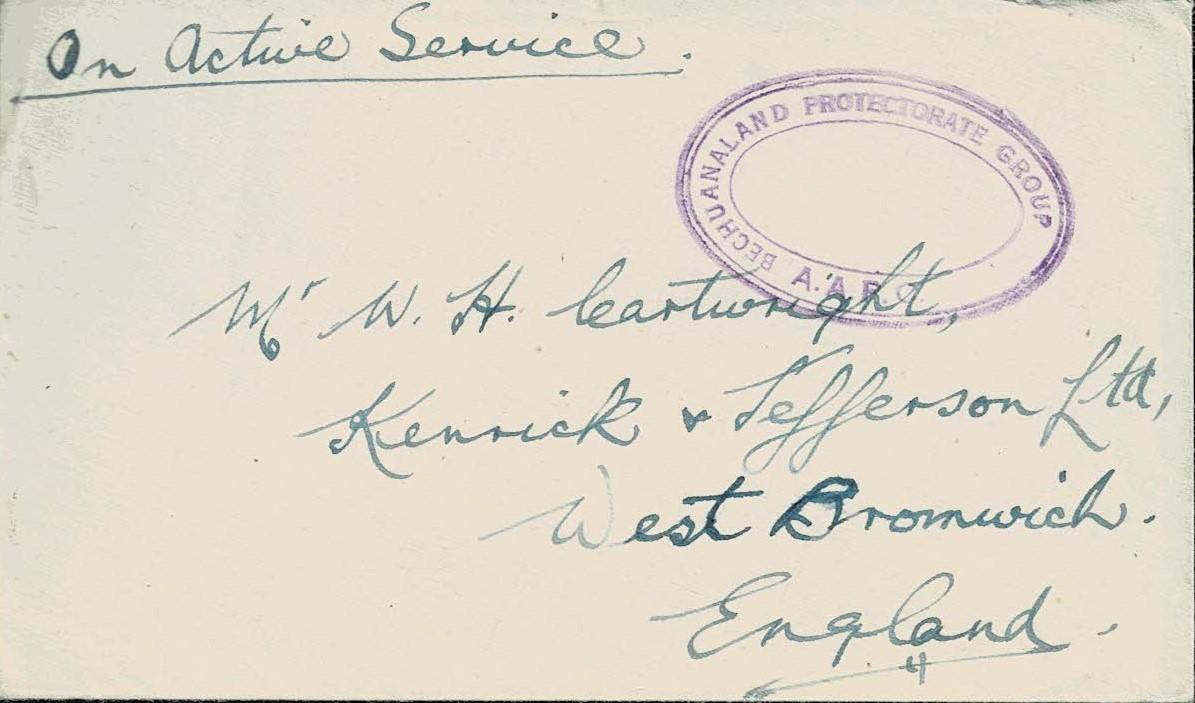 On Active Service.
BECHUANALAND PROTECTORATE GROUP
A.A.P.C.
Mr W. H. Cartwright,
Kenrick & Jefferson Ltd,
West Bromwich.
England.